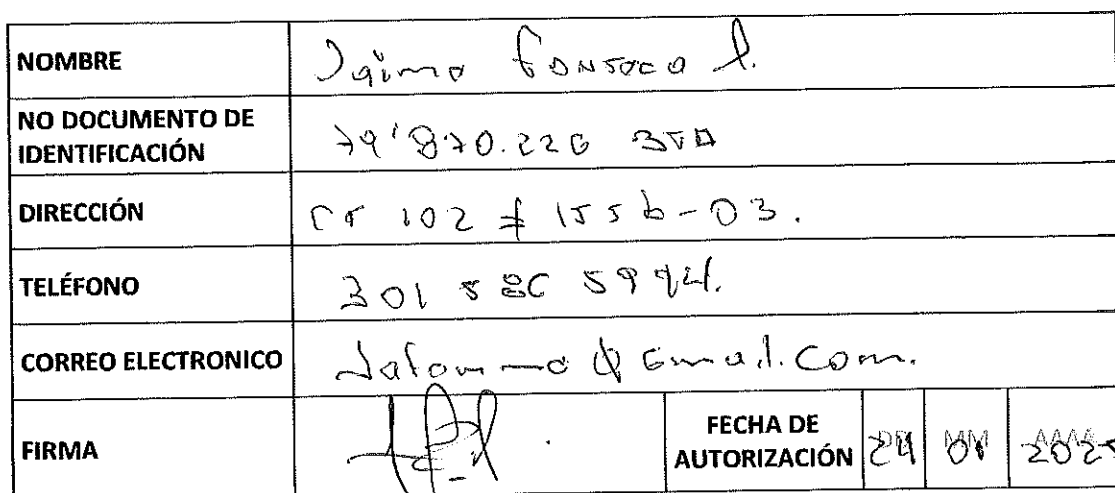 NOMBRE Jaime Fonseca L.
NO DOCUMENTO DE
IDENTIFICACIÓN 79'870.226 BTA
DIRECCIÓN Cr 102 # 155b-03.
TELÉFONO 301 5
CORREO ELECTRONICO @Gmail.com.
FIRMA
FECHA DE
AUTORIZACIÓN 24 01